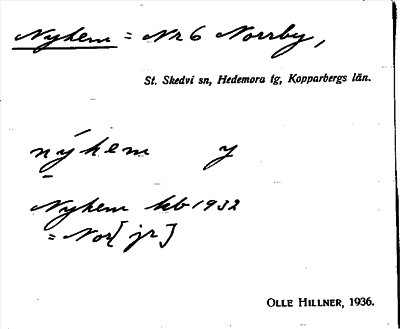 Nyhem = Nr 6 Norrby,
St. Skedvi sn, Hedemora tg, Kopparbergs län.
nýhem y
Nyhem kb 1932
= Nor[ jr]
OLLE HILLNER, 1936.